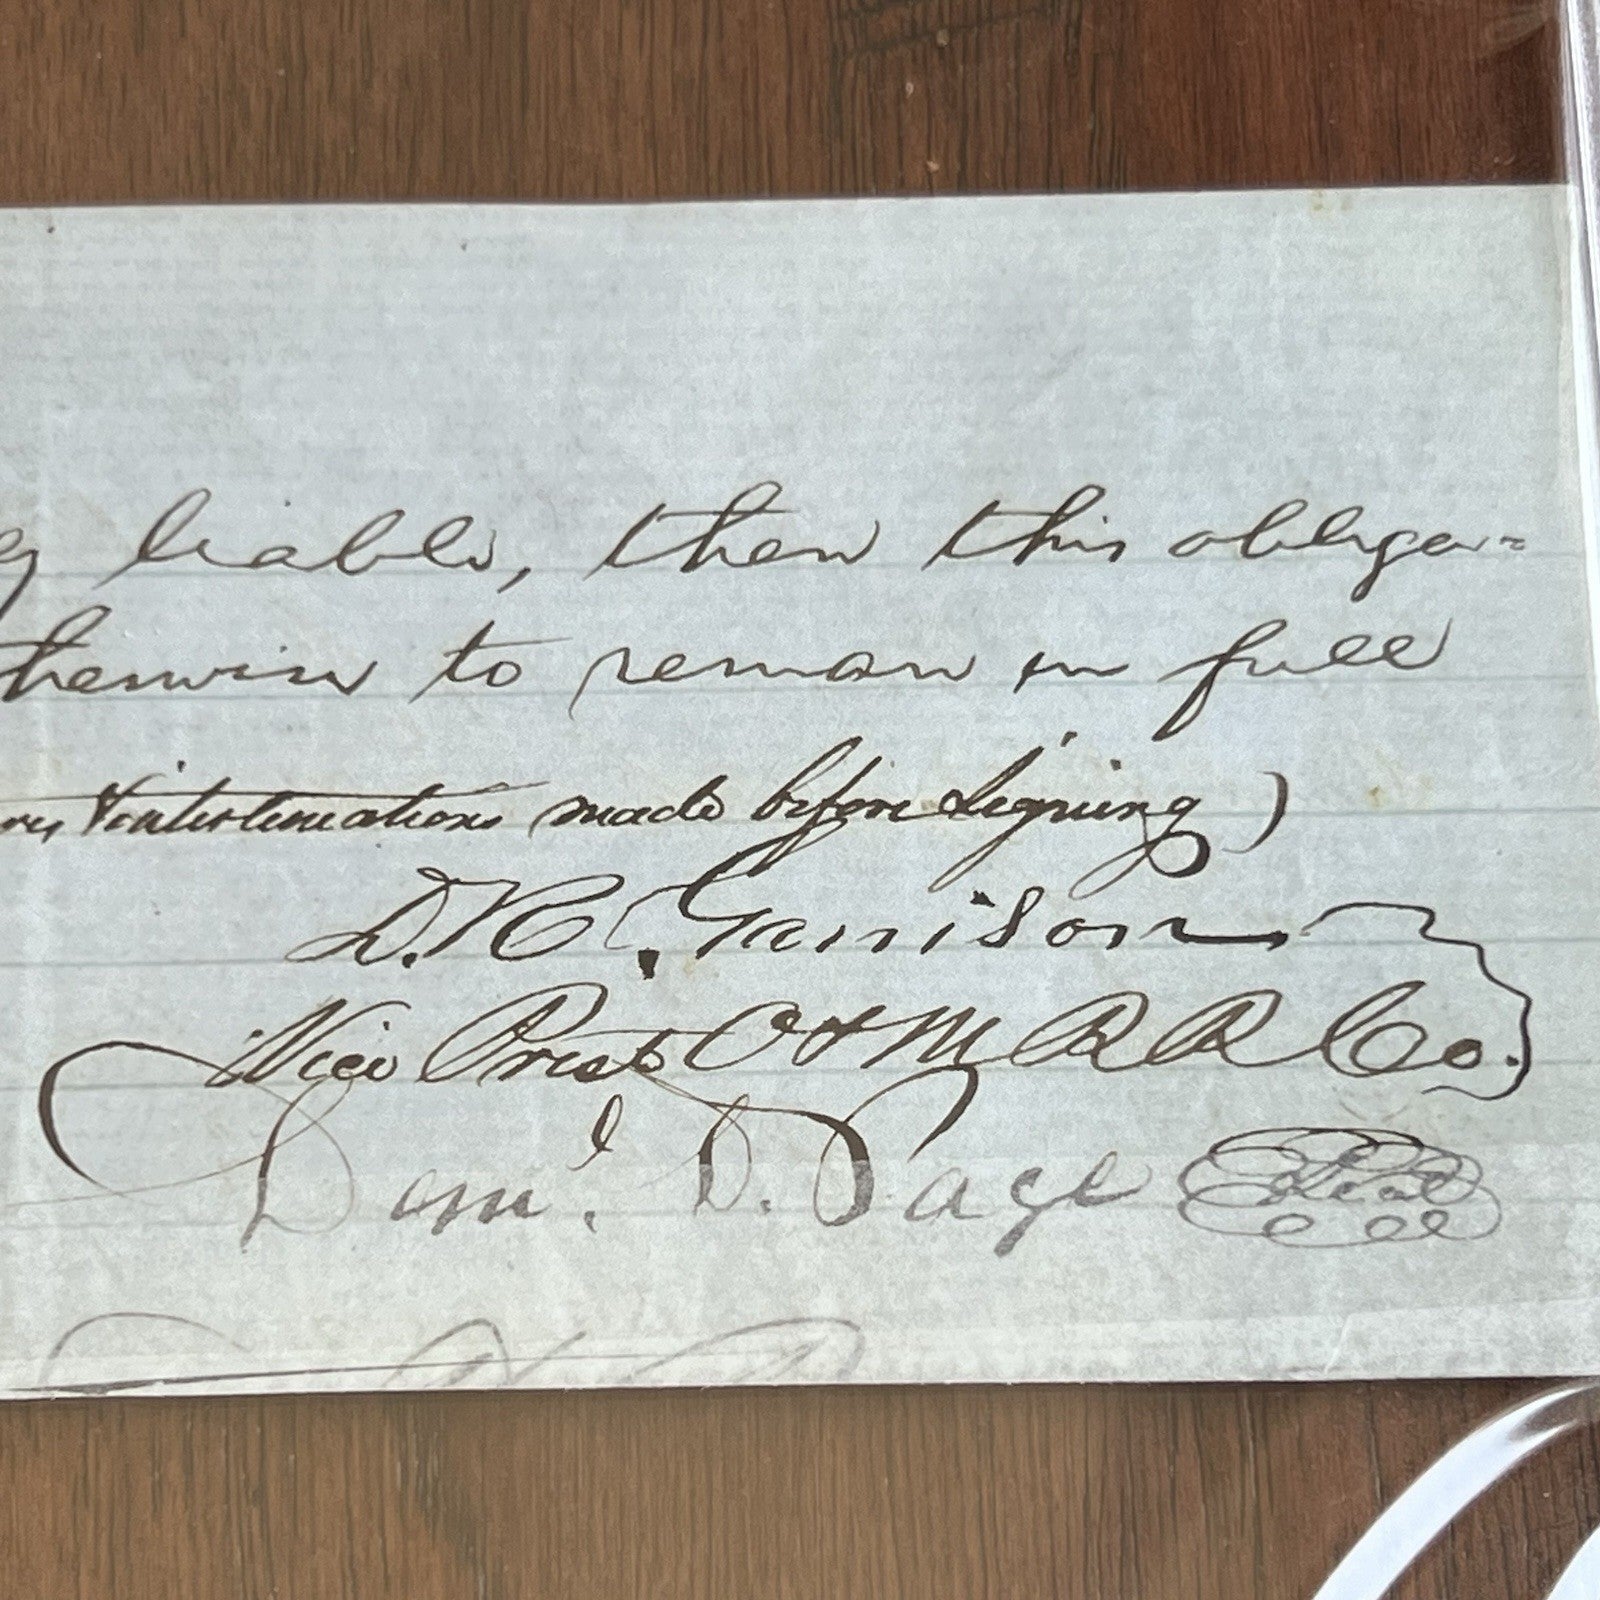 liable, then this obliga=
therwise to remain in full
& interlineations made before signing)
D. R. Garrison
Vice Prest O & M R R Co.
Danl. D. Page Seal